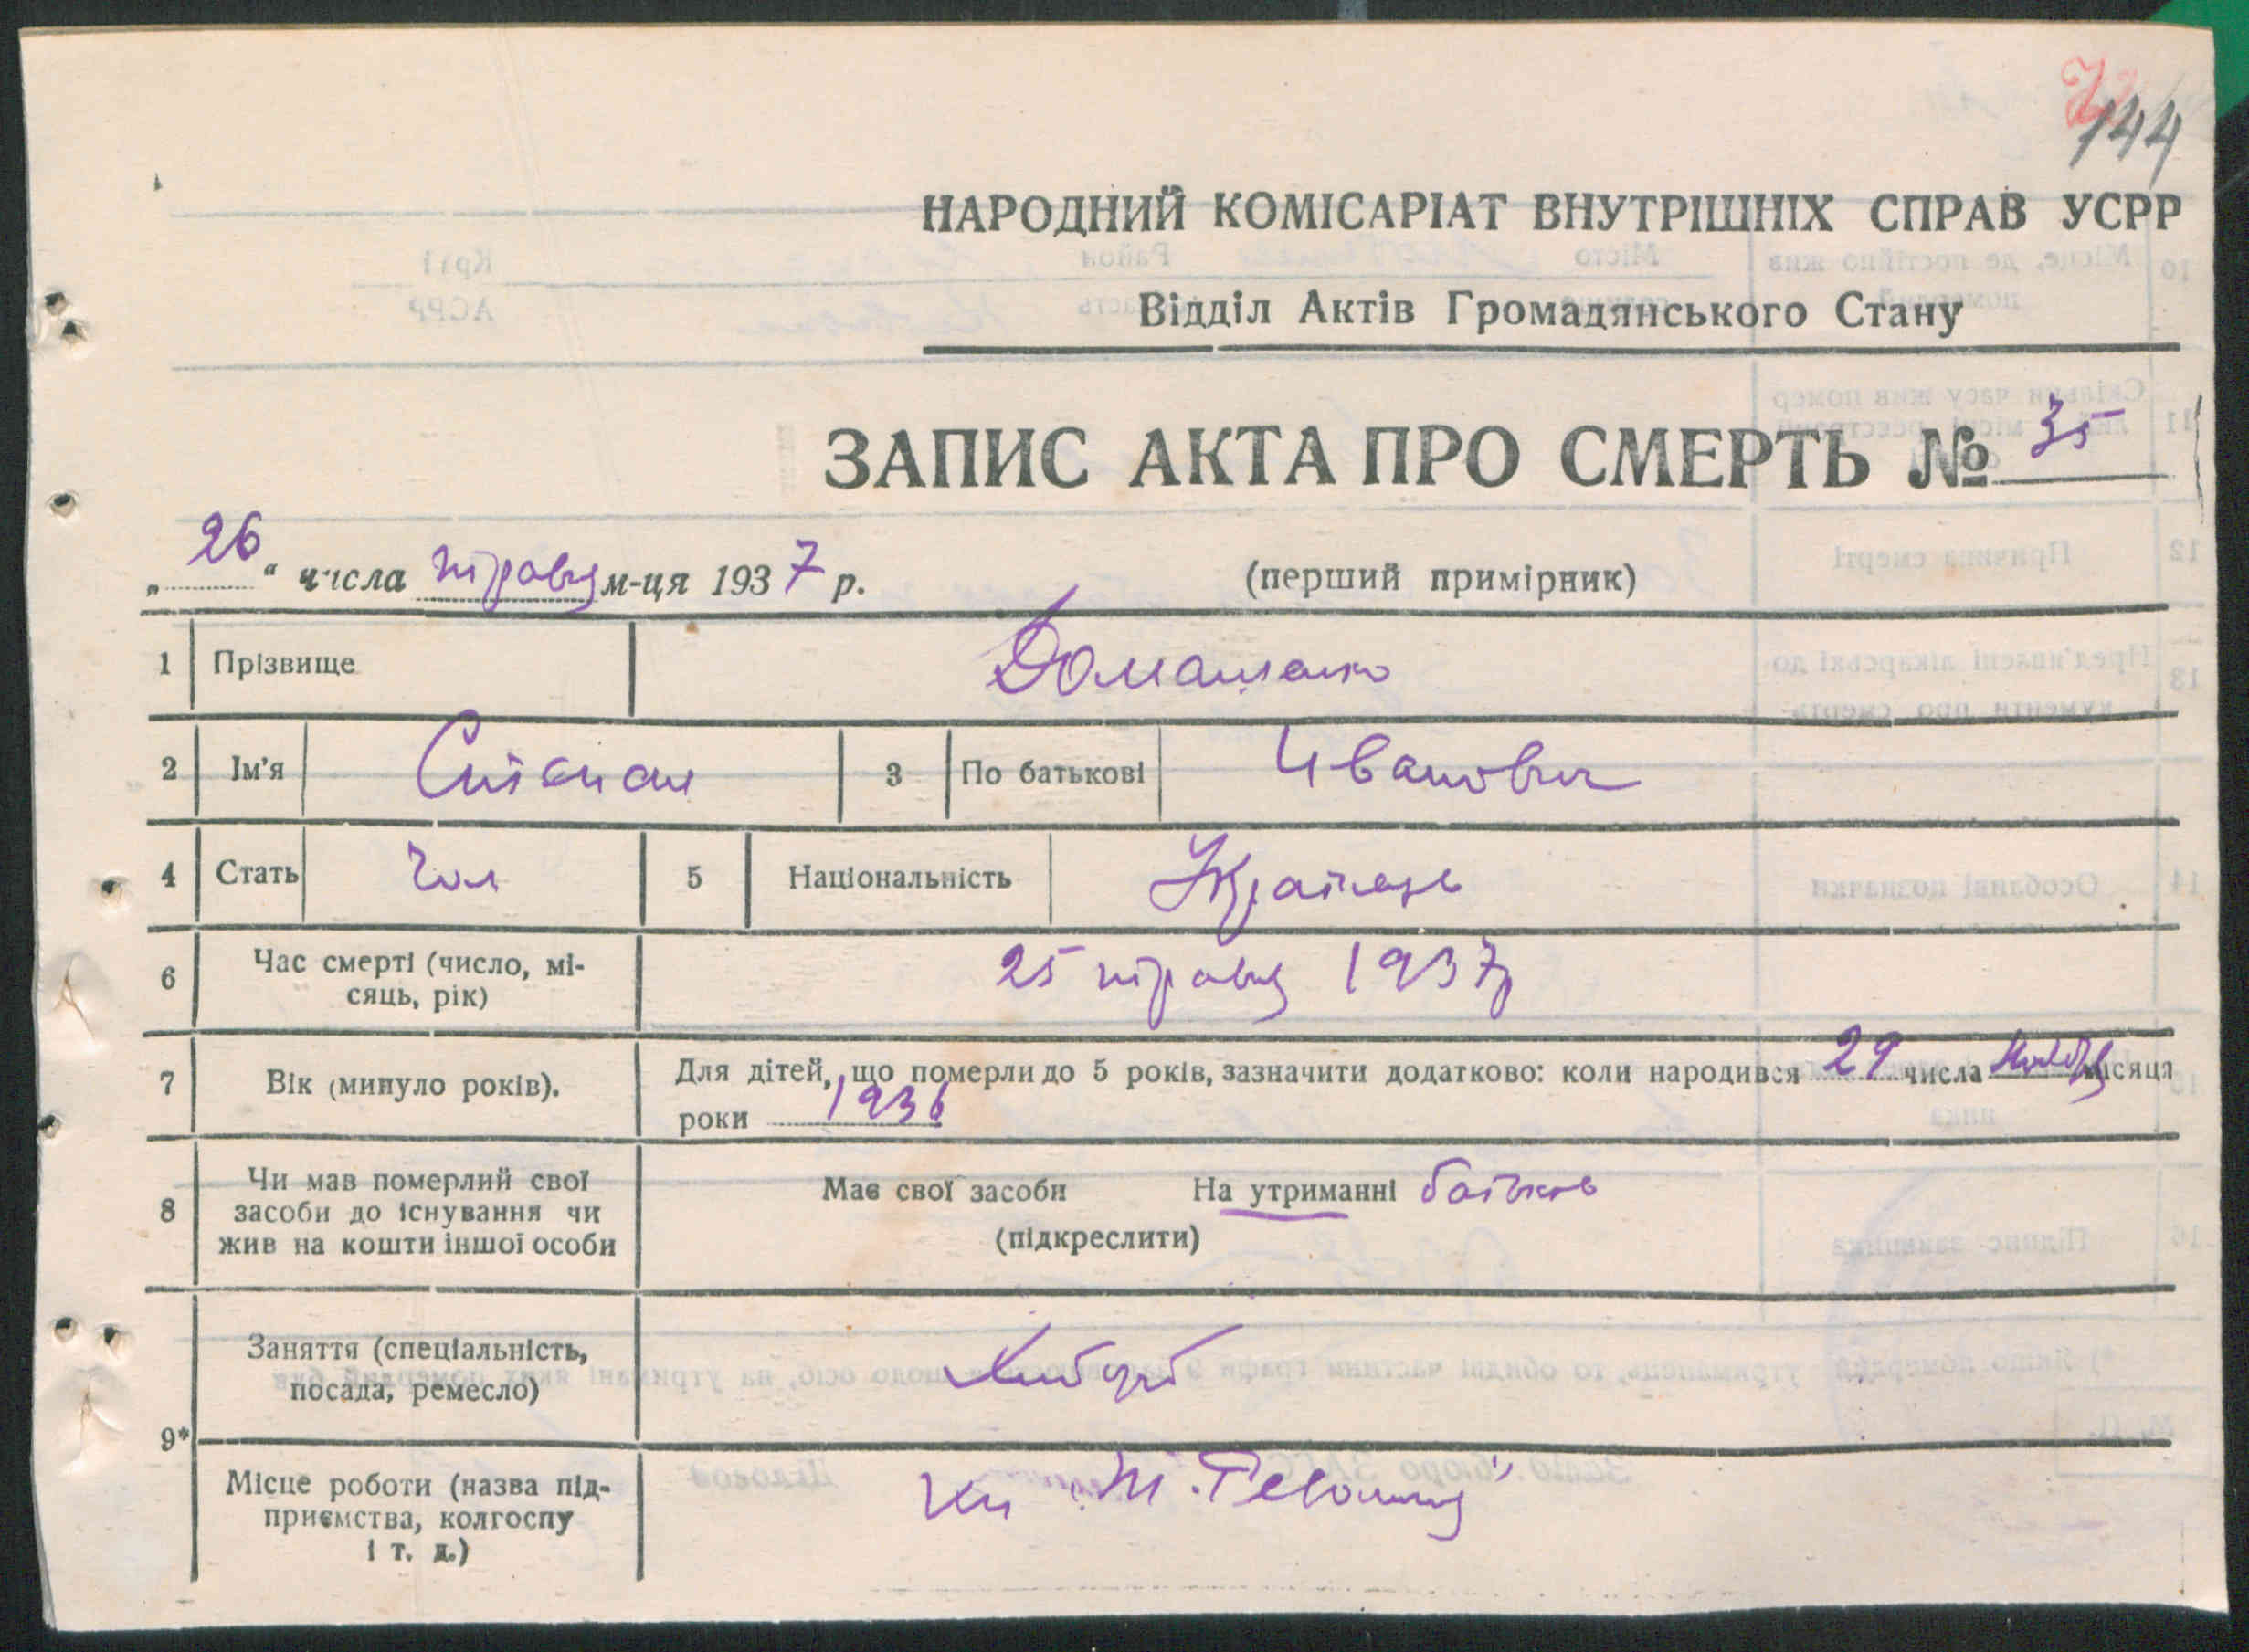 144
НАРОДНИЙ КОМІСАРІАТ ВНУТРІШНІХ СПРАВ УСРР
Відділ Актів Громадянського Стану
ЗАПИС АКТА ПРО СМЕРТЬ № 35
„26“ числа травня м-ця 1937 р. (перший примірник)
1 Прізвище Домашенко
2 Ім'я Степан 3 По батькові Иванович
4 Стать Чол 5 Національність Українець
6 Час смерті (число, мі-
сяць, рік) 25 травня 1937 р
7 Вік (минуло років). Для дітей, що померли до 5 років, зазначити додатково: коли народився 29 числа місяця
роки 1936
8 Чи мав померлий свої
засоби до існування чи
жив на кошти іншої особи
Має свої засоби На утриманні батьків
(підкреслити)
9*
Заняття (спеціальність,
посада, ремесло) Хлібороб
Місце роботи (назва під-
приємства, колгоспу
і т. д.)